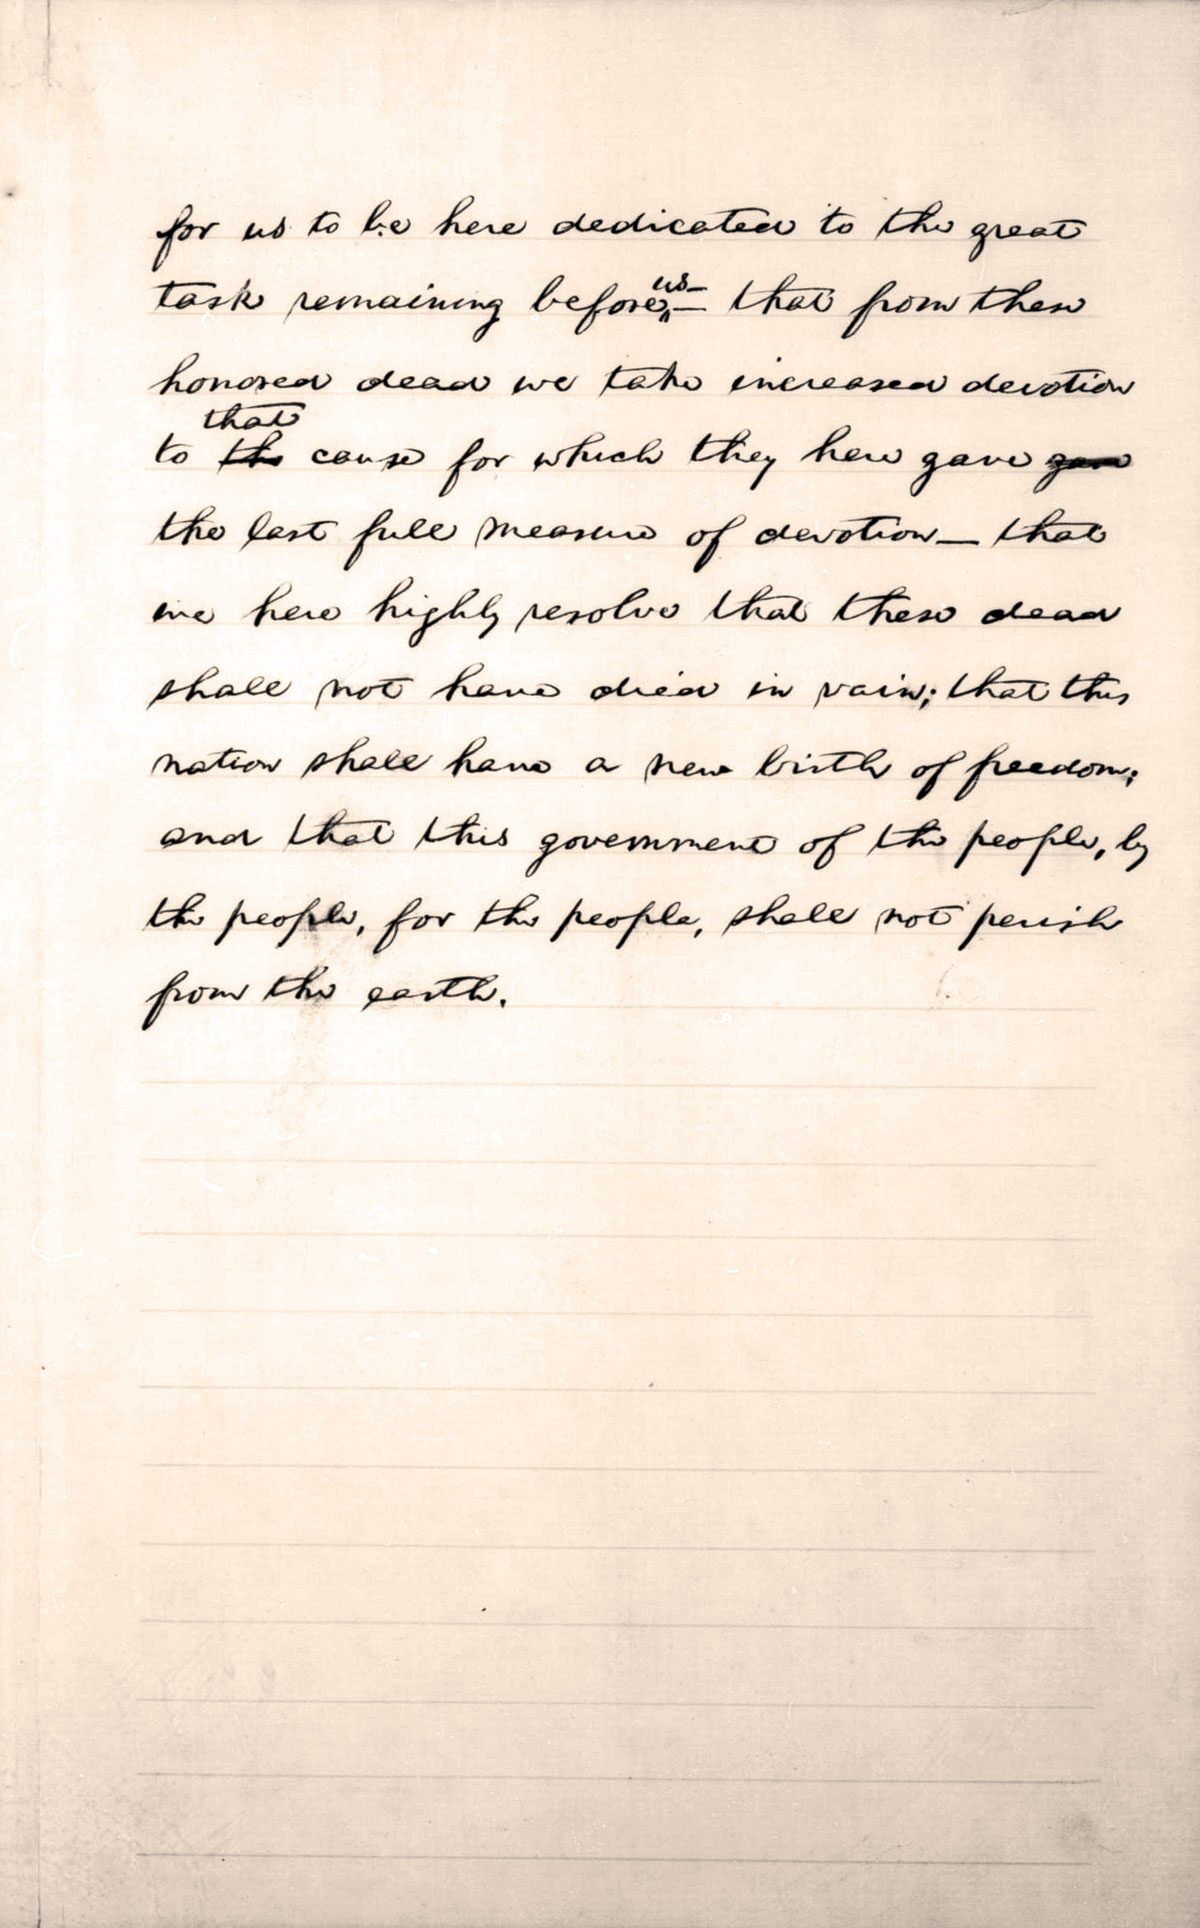 for us to be here dedicated to the great
us—
task remaining before — that from these
honored dead we take increased devotion
that
to the cause for which they here gave gave
the last full measure of devotion — that
we here highly resolve that these dead
shall not have died in vain; that this
nation shall have a new birth of freedom;
and that this government of the people, by
the people, for the people, shall not perish
from the earth.